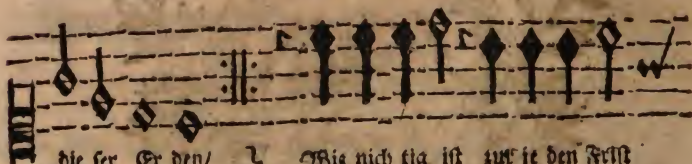 die ser Er den/ Wie nich tig ist zur je den Frist